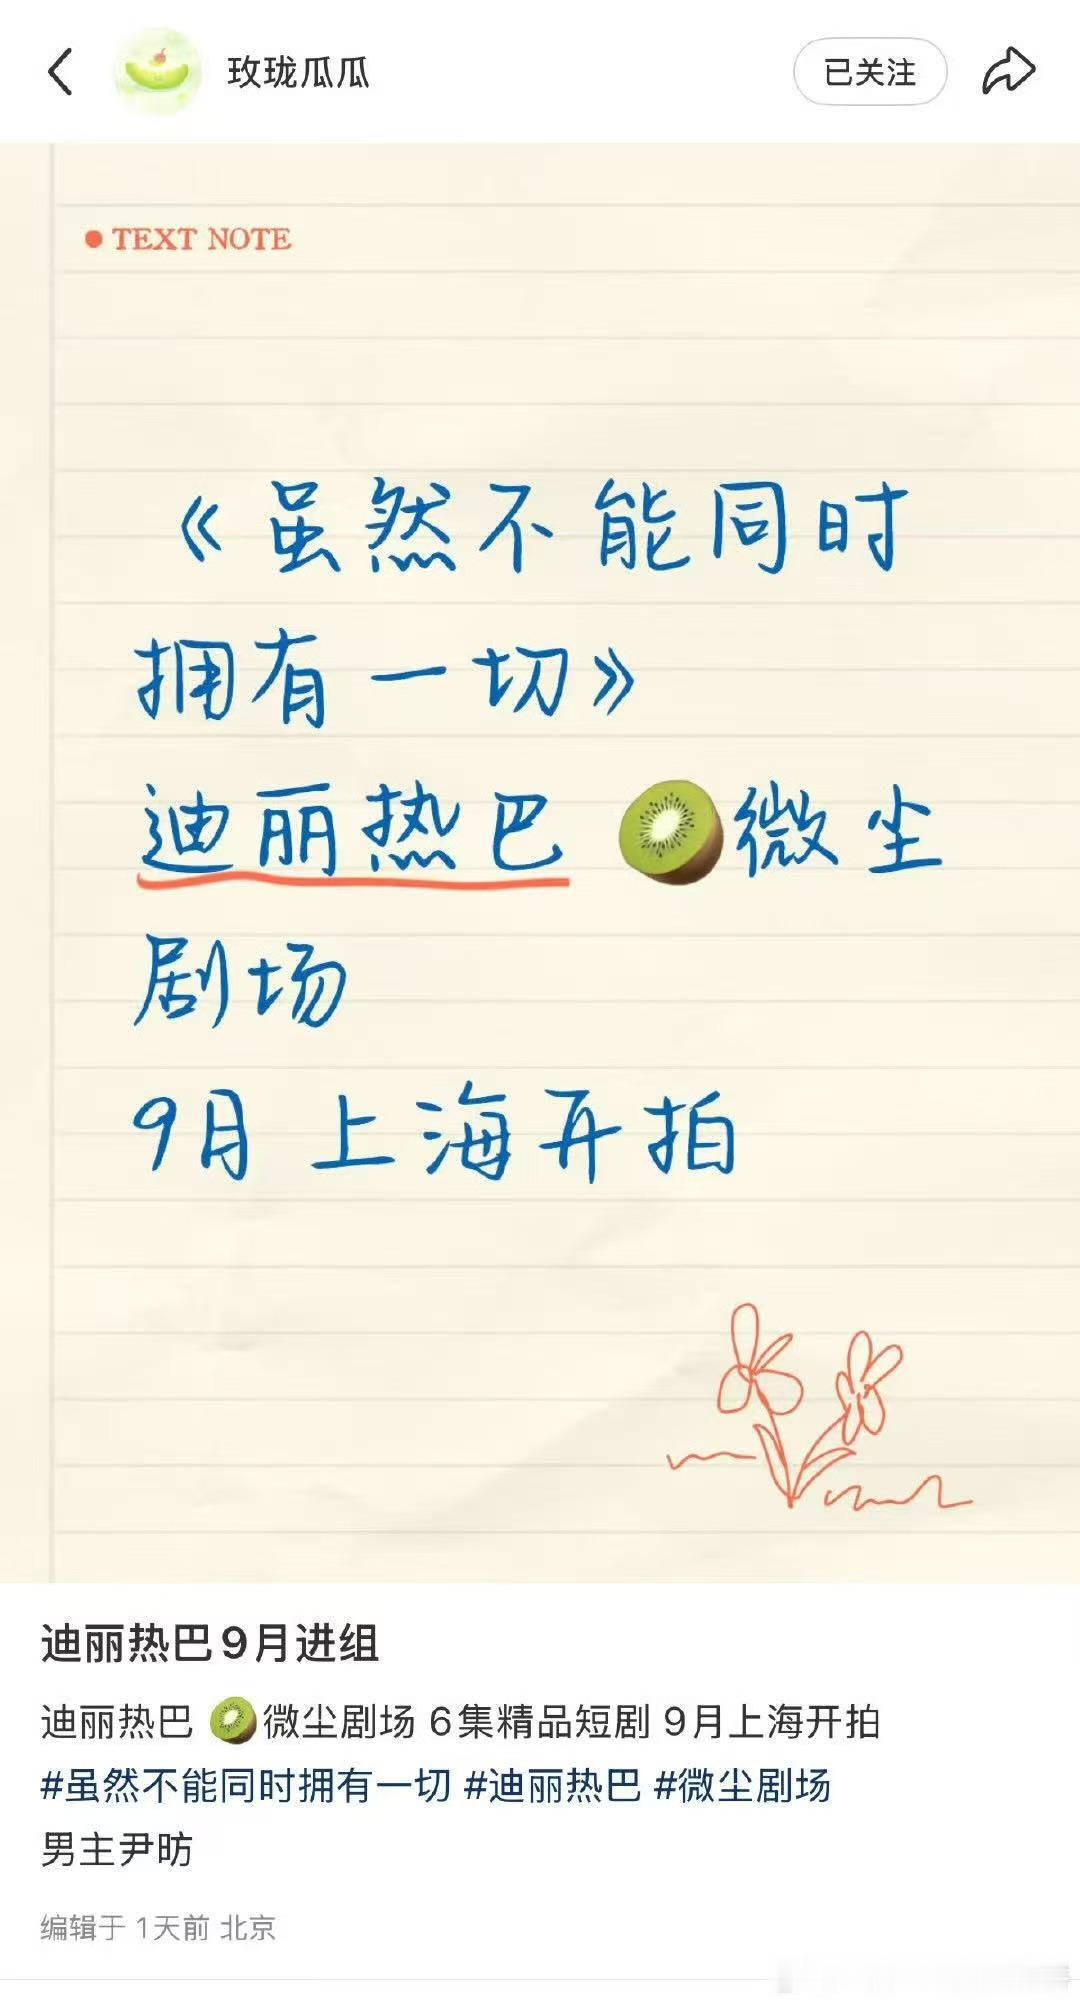 玫珑瓜瓜
已关注
TEXT NOTE
《虽然不能同时
拥有一切》
迪丽热巴 🥝微尘
剧场
9月 上海开拍
迪丽热巴9月进组
迪丽热巴 🥝微尘剧场 6集精品短剧 9月上海开拍
#虽然不能同时拥有一切 #迪丽热巴 #微尘剧场
男主尹昉
编辑于 1天前 北京